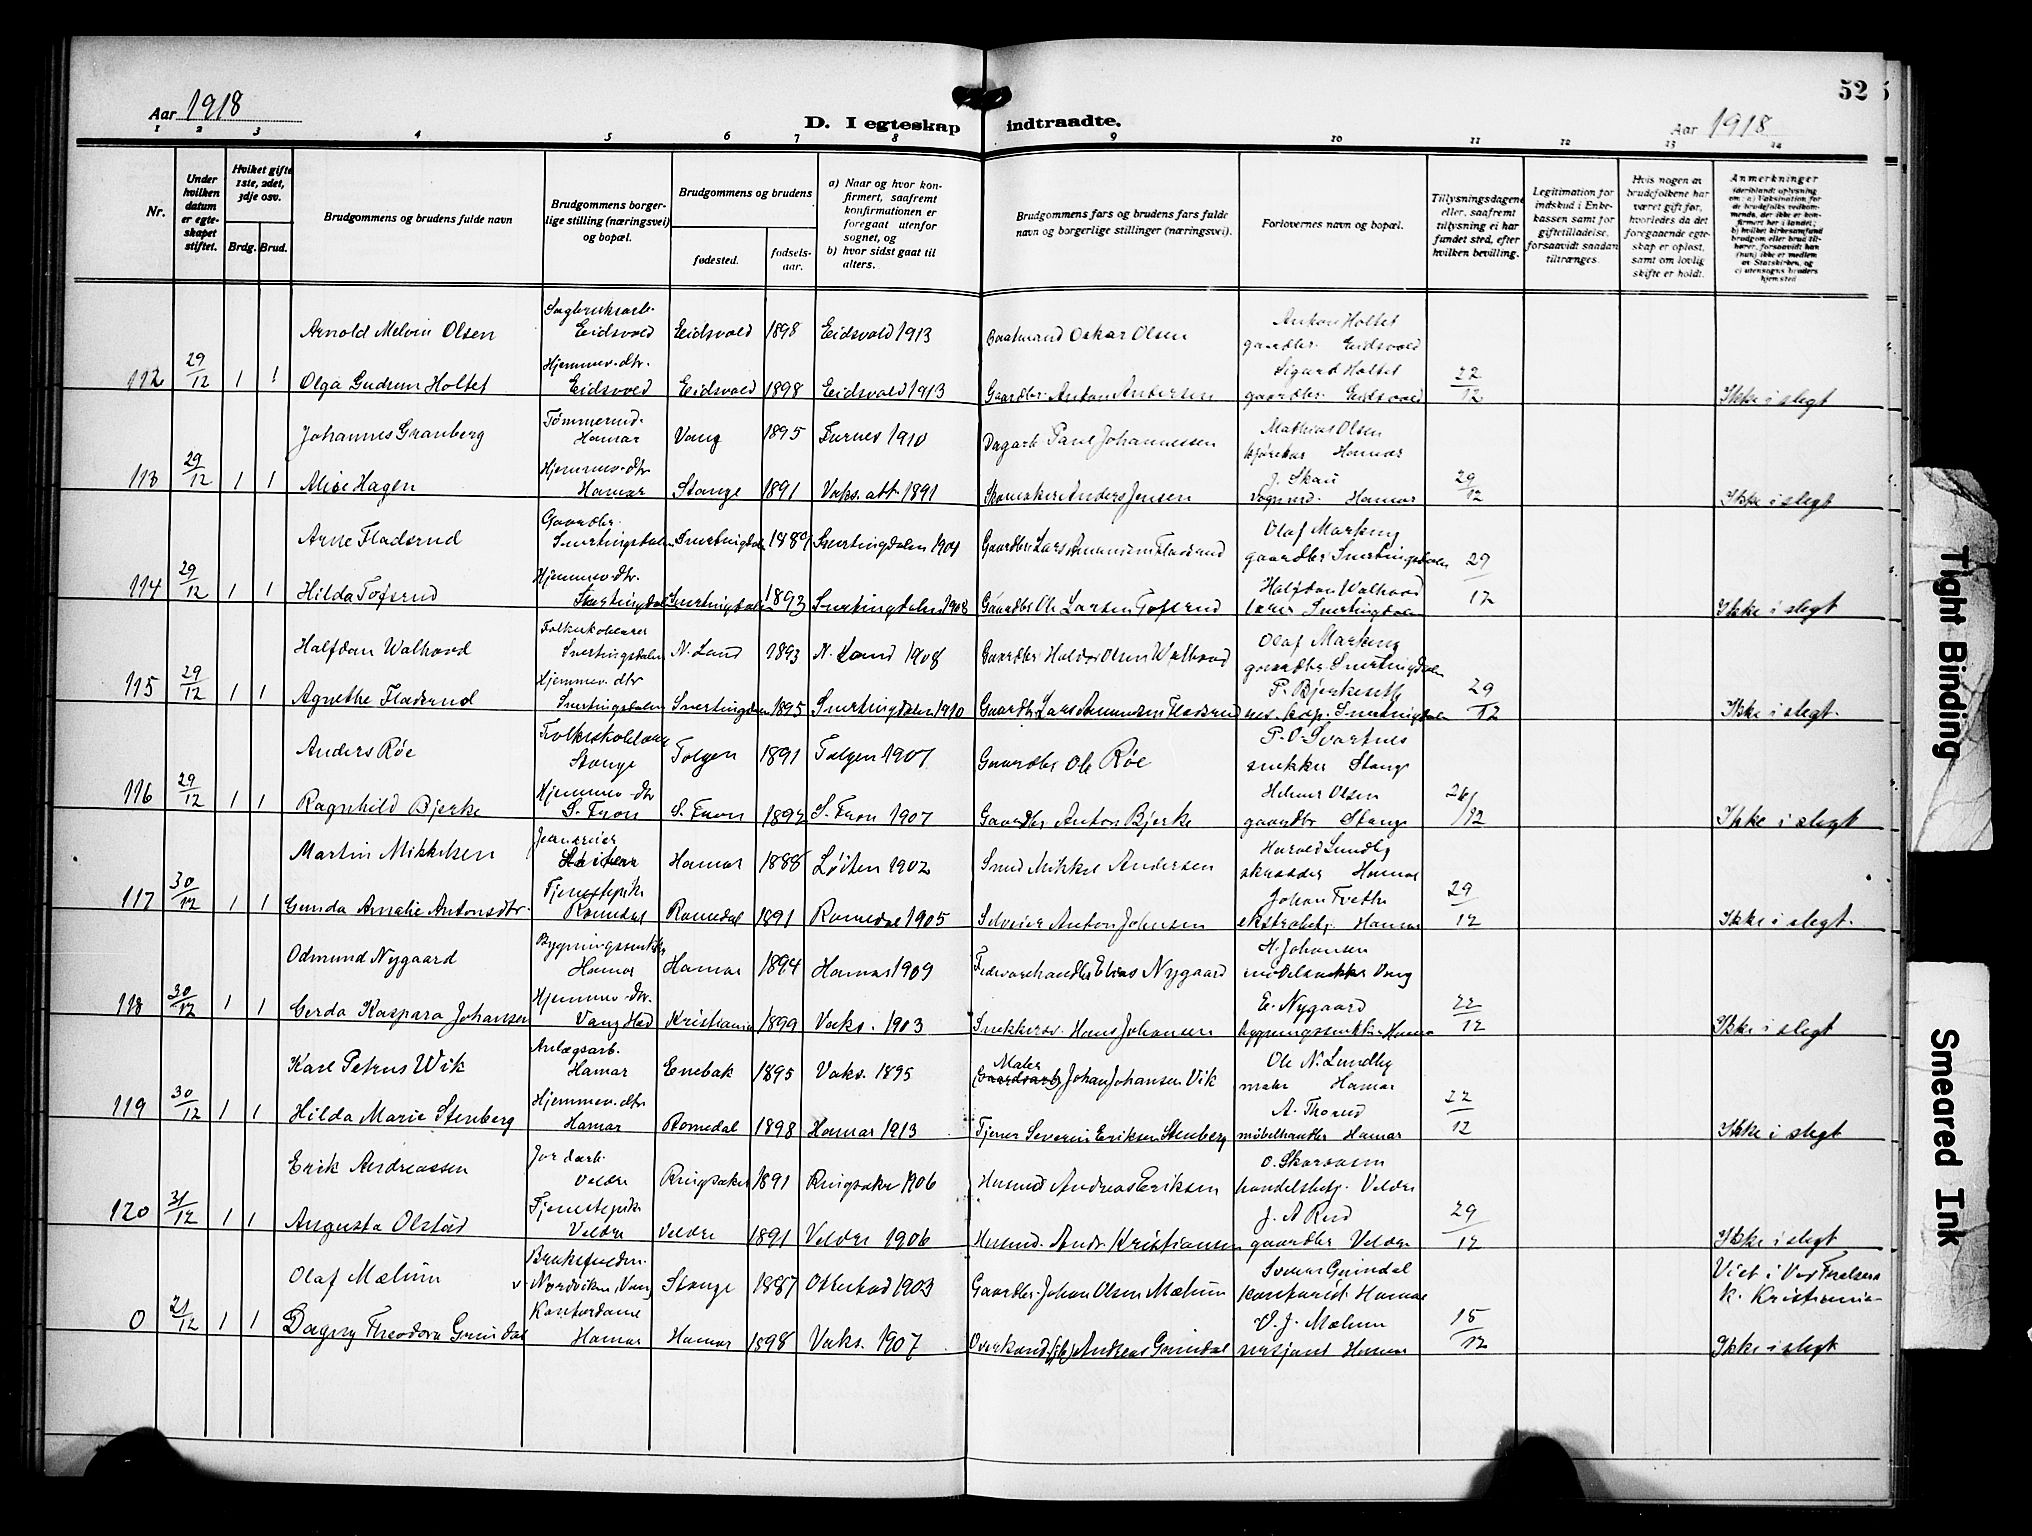 Aar 1918
D. I egteskap indtraadte.
Aar 1918
52
1 2 3 4 5 6 7 8 9 10 11 12 13 14
Nr.
Under hvilken datum er egteskapet stiftet.
Hvilket gifte 1ste, 2det, 3dje osv.
Brdg. Brud.
Brudgommens og brudens fulde navn
Brudgommens borgerlige stilling (næringsvei) og bopæl.
Brudgommens og brudens
fødested.
fødselsaar.
a) Naar og hvor konfirmert, saafremt konfirmationen er foregaat utenfor sognet, og
b) hvor sidst gaat til alters.
Brudgommens fars og brudens fars fulde navn og borgerlige stillinger (næringsvei).
Forlovernes navn og bopæl.
Tillysningsdagene eller, saafremt tillysning ei har fundet sted, efter hvilken bevilling.
Legitimation for indskud i Enkekassen samt for giftetilladelse, forsaavidt saadan tiltrænges.
Hvis nogen av brudefolkene har været gift før, hvorledes da det foregaaende egteskap er opløst, samt om lovlig skifte er holdt.
Anmerkninger
Arnold Melvin Olsen Sagbruksarb. Eidsvold Eidsvold 1898 Eidsvold 1913 Baatmand Oskar Olsen Anton Holtet gaardbr. Eidsvold
112 29/12 1 1 Olga Gudrun Holtet Hjemmev. dtr. Eidsvold Eidsvold 1898 Eidsvold 1913 Gaardbr. Anton Andersen Sigurd Holtet gaardbr. Eidsvold 22/12 Ikke i slegt
Johannes Granberg Tømmermd. Hamar Vang 1895 Furnes 1910 Dagarb. Paul Johannessen Mathias Olsen kjørekar Hamar
113 29/12 1 1 Alice Hagen Hjemmev. dtr Hamar Stange 1891 Vaks. att. 1891 Skomaker Anders Jensen J. Skau Hamar 29/12 Ikke i slegt
Arne Fladsrud Gaardbr. Snertingdalen Snertingdalen 1889 Snertingdalen 1904 Gaardbr. Lars Amundsen Fladsrud Olaf Markeng gaardbr. Snertingsdalen
114 29/12 1 1 Hilda Tofsrud Hjemmev. dtr. Snertingdalen Snertingdalen 1893 Snertingdalen 1908 Gaardbr. Ole Larsen Tofsrud Halfdan Walhovd lærer Snertingdalen 29/12 Ikke i slegt
Halfdan Walhovd Folkeskolelærer Snertingsdalen N. Land 1893 N. Land 1908 Gaardbr. Haldor Olsen Walhovd Olaf Markeng gaardbr. Snertingdalen
115 29/12 1 1 Agnethe Fladsrud Hjemmev. dtr Snertingsdalen Snertingdalen 1895 Snertingdalen 1910 Gaardbr. Lars Amundsen Fladsrud P. Bjerkeseth res. kap. Snertingdalen 29/12 Ikke i slegt.
Anders Røe Folkeskolelærer Stange Tolgen 1891 Tolgen 1907 Gaardbr Ole Røe P. O. Svartnes snekker Stange
116 29/12 1 1 Ragnhild Bjerke Hjemmev. dtr S. Fron S. Fron 1892 S. Fron 1907 Gaardbr Anton Bjerke Hilmar Olsen gaardbr Stange 26/12 Ikke i slegt
Martin Mikkelsen Løiten Hamar 1888 Løiten 1902 Smed Mikkel Andersen Harald Lundby skrædder Hamar
117 30/12 1 1 Gunda Amalie Antonsdtr. Tjenestepike Romedal Romedal 1891 Romedal 1905 Selveier Anton Johansen Johan Tvethe ekstrabetj. Hamar 29/12 Ikke i slegt.
Odmund Nygaard Bygningssnekker Hamar Hamar 1894 Hamar 1909 Fedevarehandler Elias Nygaard H. Johansen møbelsnekker Vang
118 30/12 1 1 Gerda Kaspara Johansen Hjemmev. dtr. Vang Hed Kristiania 1899 Vaks. 1903 Snekkersv. Hans Johansen E. Nygaard bygningssnekker Hamar 22/12 Ikke i slegt
Karl Petrus Wik Anlægsarb. Hamar Enebak 1895 Vaks. 1895 Maler Johan Johansen Vik Ole N. Lundby maler Hamar
119 30/12 1 1 Hilda Marie Stenberg Hjemmev. dtr Hamar Romedal 1898 Hamar 1913 Tjener Severin Eriksen Stenberg A. Thorud møbelhandler Hamar 22/12 Ikke i slegt
Erik Andreassen Jordarb. Veldre Ringsaker 1891 Ringsaker 1906 Husmd Andreas Eriksen O. Skarsam handelsbetj. Veldre
120 31/12 1 1 Augusta Olstad Tjenestepike Veldre Veldre 1891 Veldre 1906 Husmd. Andr. Kristiansen J. A Rud gaardbr Veldre 29/12 Ikke i slegt
Olaf Mælum v. Nordviken, Vang Stange 1887 Ottestad 1903 Gaardbr. Johan Olsen Mælum Sverre Grindal kontorist Hamar Viet i Vor Frelsers k. Kristiania
0 21/12 1 1 Dagny Theodora Grindal Kontordame Hamar Hamar 1898 Vaks. 1907 Andreas Grindal O. J. Mælum sersjant Hamar 15/12 Ikke i slegt
Tight Binding
Smeared Ink